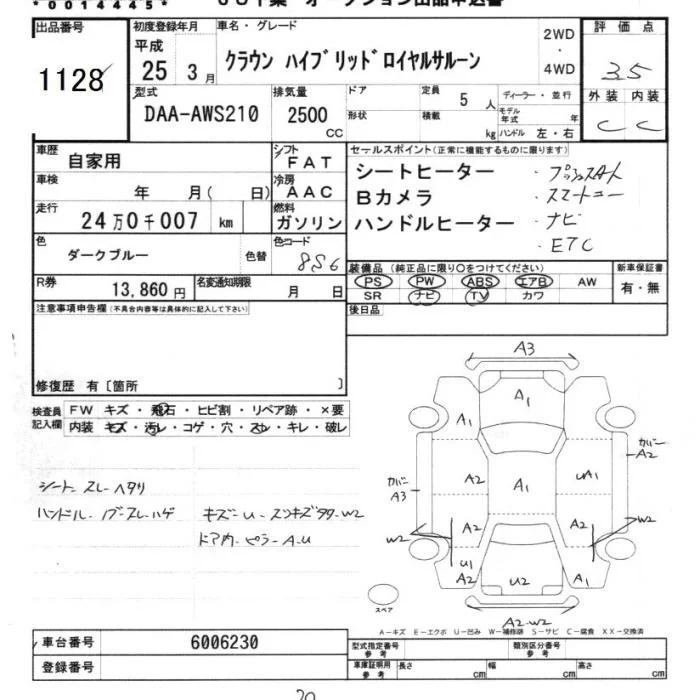 *0014445*
出品番号
1128
初度登録年月
平成
25 3月
車名・グレード
クラウン ハイブリッドロイヤルサルーン
2WD
・
4WD
評価点
3.5
外装 内装
C C
型式
DAA-AWS210
排気量
2500
CC
ドア
形状
定員
5 人
積載
kg
ディーラー・並行
モデル
年式 年
ハンドル 左・右
車歴
自家用
シフト
FAT
車検
年 月( 日)
冷房
AAC
走行
24万0千007 km
燃料
ガソリン
色
ダークブルー
色替
色コード
8S6
R券
13,860円
名変通知期限
月 日
セールスポイント(正常に機能するものに限ります)
シートヒーター
Bカメラ
ハンドルヒーター
・プッシュスタート
・スマートキー
・ナビ
・ETC
装備品(純正品に限り○をつけてください)
PS PW ABS エアB AW
SR ナビ TV カワ
新車保証書
有・無
後日品
注意事項申告欄(不具合内容等は具体的に記入して下さい)
修復歴 有〔箇所 〕
検査員
記入欄
FW キズ・飛石・ヒビ割・リペア跡・×要
内装 キズ・汚レ・コゲ・穴・スレ・キレ・破レ
シート スレ ヘタリ
ハンドル
キズ
ドア内 ピラー A-U
A3
A1
A1
カバー
A2
カバー
A3
A2
A1
UA1
W2
A2
A2
W2
U1
A2
U2
A1
A2-W2
スペア
A-キズ E-エクボ U-凹み W-補修跡 S-サビ C-腐食 XX-交換済
車台番号
6006230
登録番号
型式指定番号
参考
類別区分番号
参考
車庫証明用
参考
長さ cm
幅 cm
高さ cm